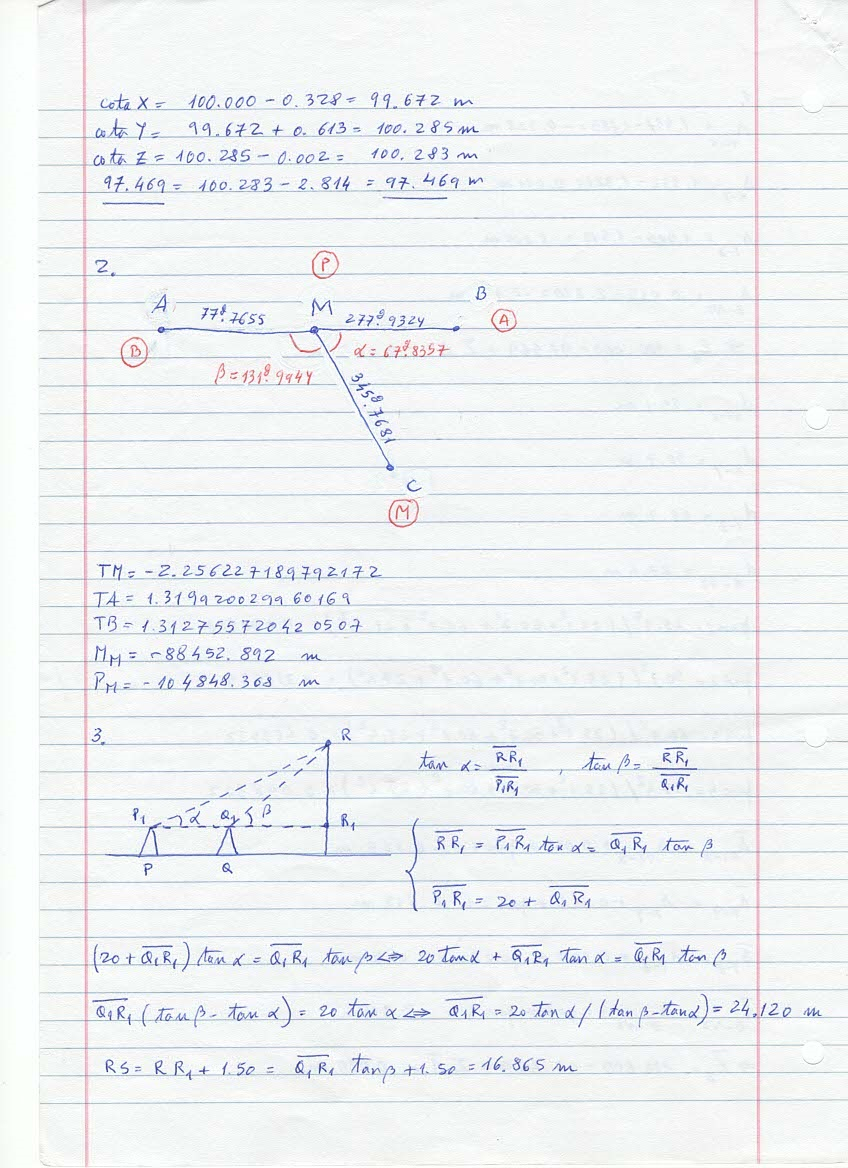 cota X = 100.000 - 0.328 = 99.672 m
cota Y = 99.672 + 0.613 = 100.285 m
cota Z = 100.285 - 0.002 = 100.283 m
97.469 = 100.283 - 2.814 = 97.469 m
2.
P
A 77ᵍ.7655 M 277ᵍ.9324 B
B A
β = 131ᵍ.9944 α = 67ᵍ.8357
345ᵍ.7681
C
M
TM = -2.256227189792172
TA = 1.319920029960169
TB = 1.312755720420507
M_M = -88452.892 m
P_M = -104848.368 m
3.
R
tan α = RR₁/P₁R₁ , tan β = RR₁/Q₁R₁
P₁ α Q₁ β R₁
P Q
RR₁ = P₁R₁ tan α = Q₁R₁ tan β
P₁R₁ = 20 + Q₁R₁
(20 + Q₁R₁) tan α = Q₁R₁ tan β ⇔ 20 tan α + Q₁R₁ tan α = Q₁R₁ tan β
Q₁R₁ (tan β - tan α) = 20 tan α ⇔ Q₁R₁ = 20 tan α / (tan β - tan α) = 24.120 m
RS = RR₁ + 1.50 = Q₁R₁ tan β + 1.50 = 16.865 m